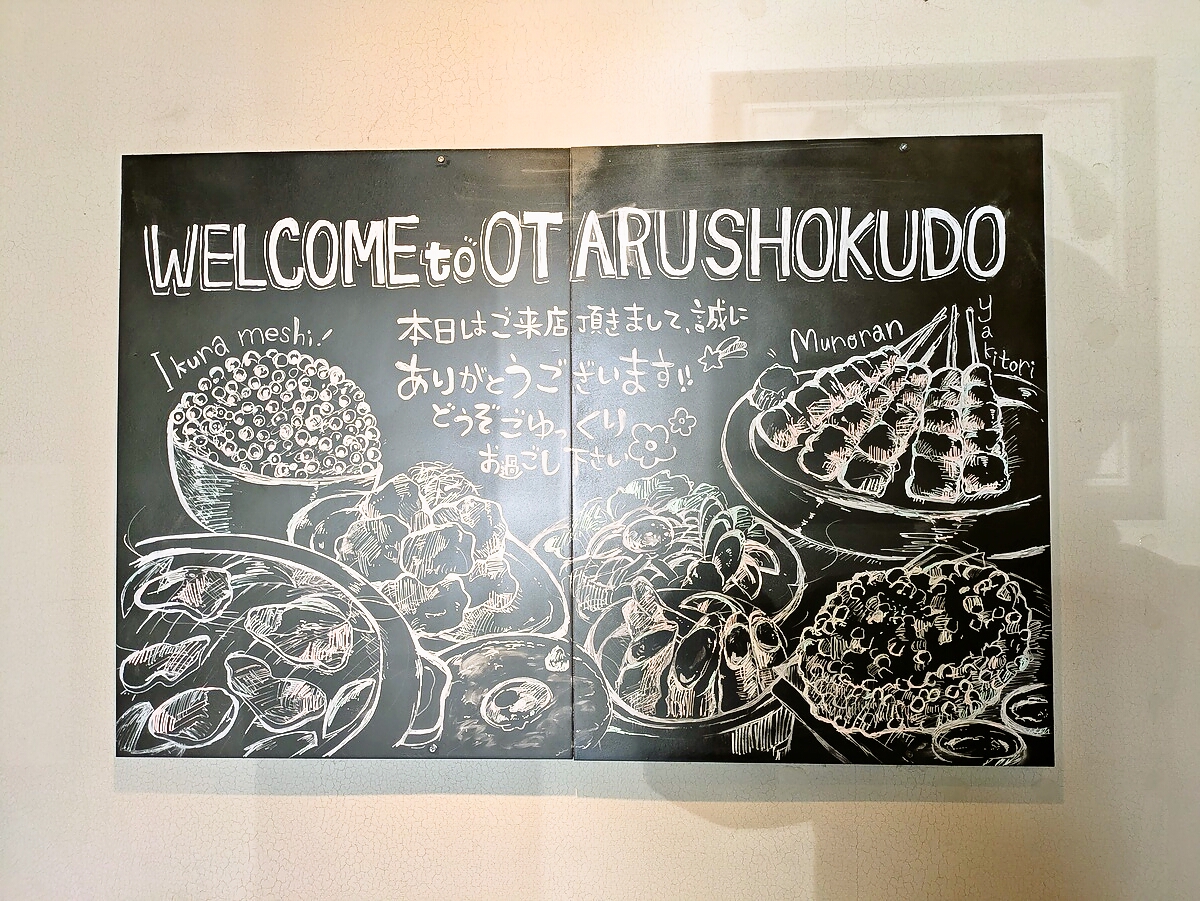 WELCOME to OTARUSHOKUDO
本日はご来店頂きまして、誠に
ありがとうございます!!
どうぞごゆっくり
お過ごし下さい
Ikura meshi!
Munoran
yakitori